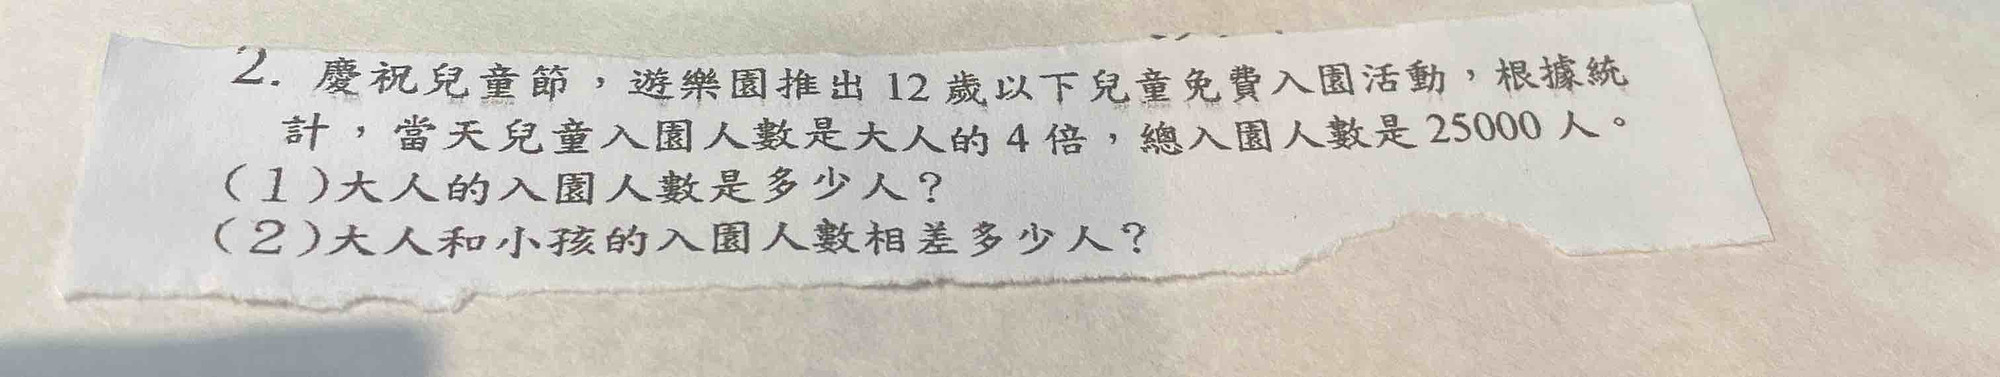 2. 慶祝兒童節，遊樂園推出 12 歲以下兒童免費入園活動，根據統
計，當天兒童入園人數是大人的 4 倍，總入園人數是 25000 人。
(1)大人的入園人數是多少人？
(2)大人和小孩的入園人數相差多少人？